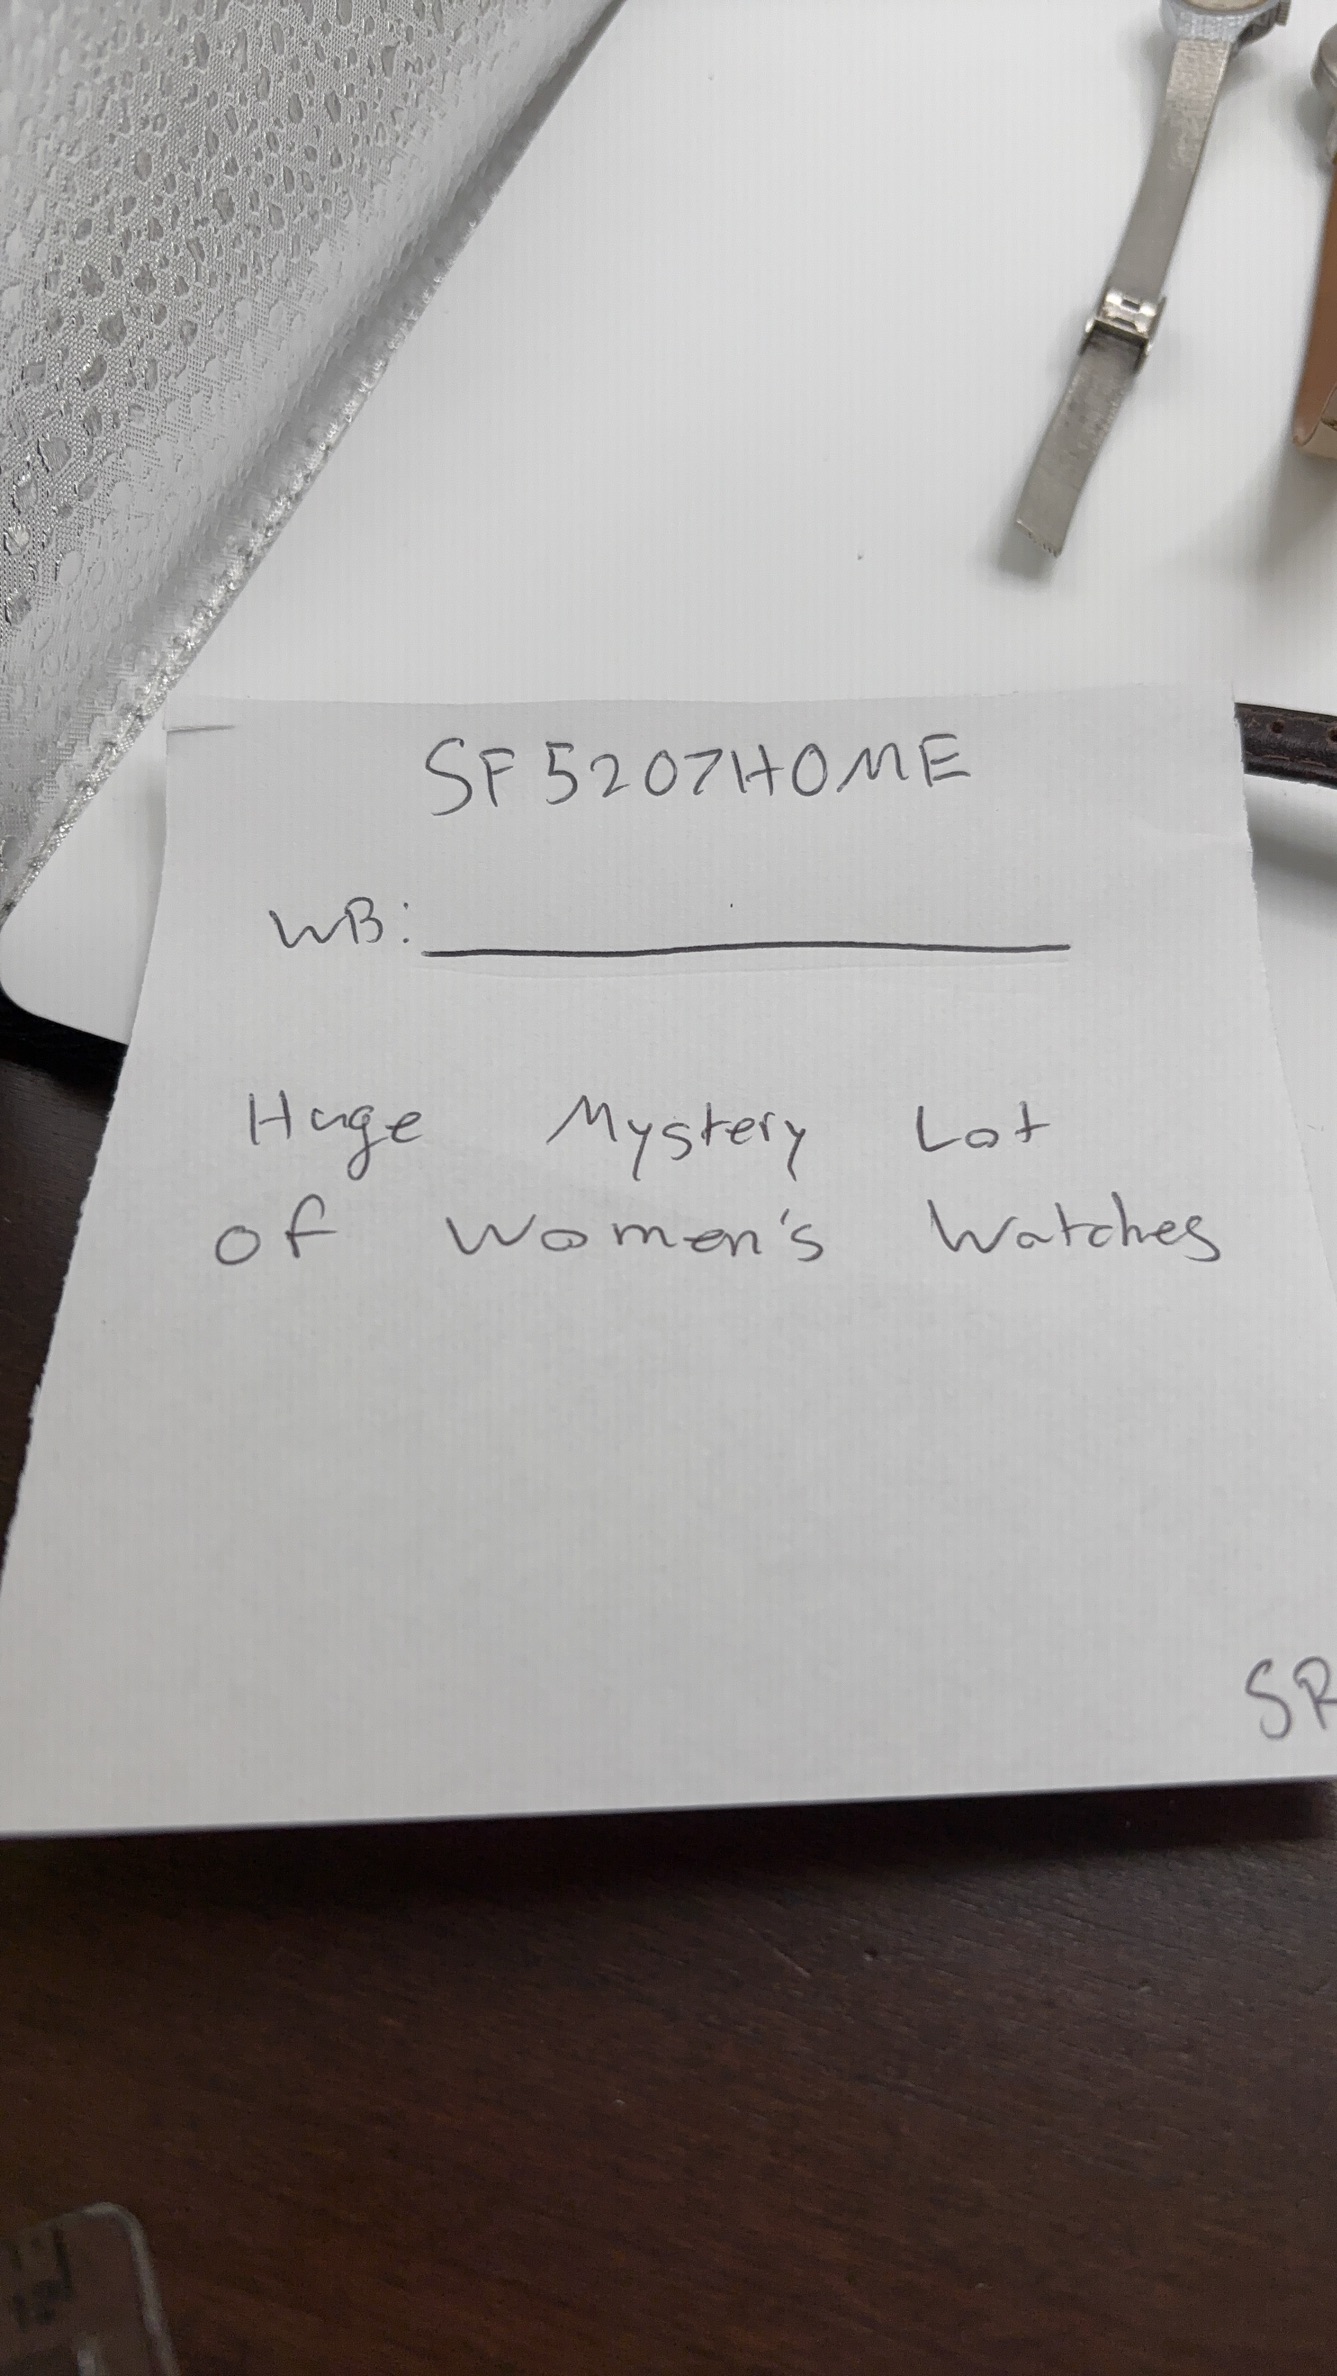 SF5207HOME
WB:
Huge Mystery Lot
of Women's Watches
SR